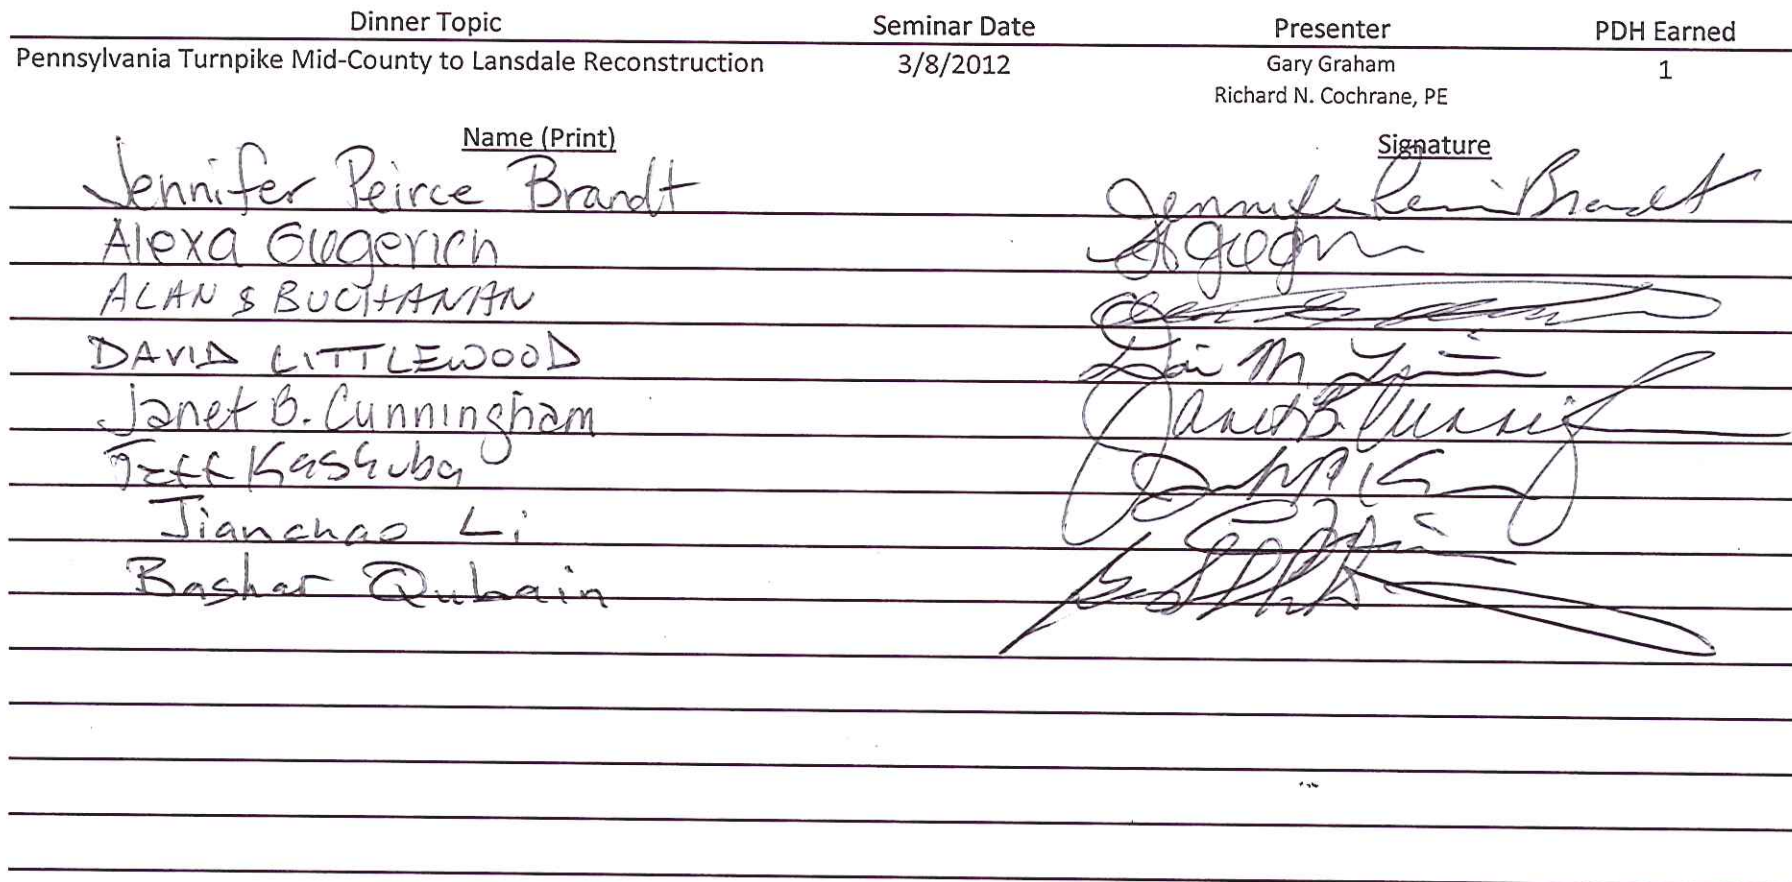 Dinner Topic Seminar Date Presenter PDH Earned
Pennsylvania Turnpike Mid-County to Lansdale Reconstruction 3/8/2012 Gary Graham 1
Richard N. Cochrane, PE
Name (Print) Signature
Jennifer Peirce Brandt
Alexa Gugerich
ALAN S BUCHANAN
DAVID LITTLEWOOD
Janet B. Cunningham
Jeff Kashuba
Jianchao Li
Bashar Qubain